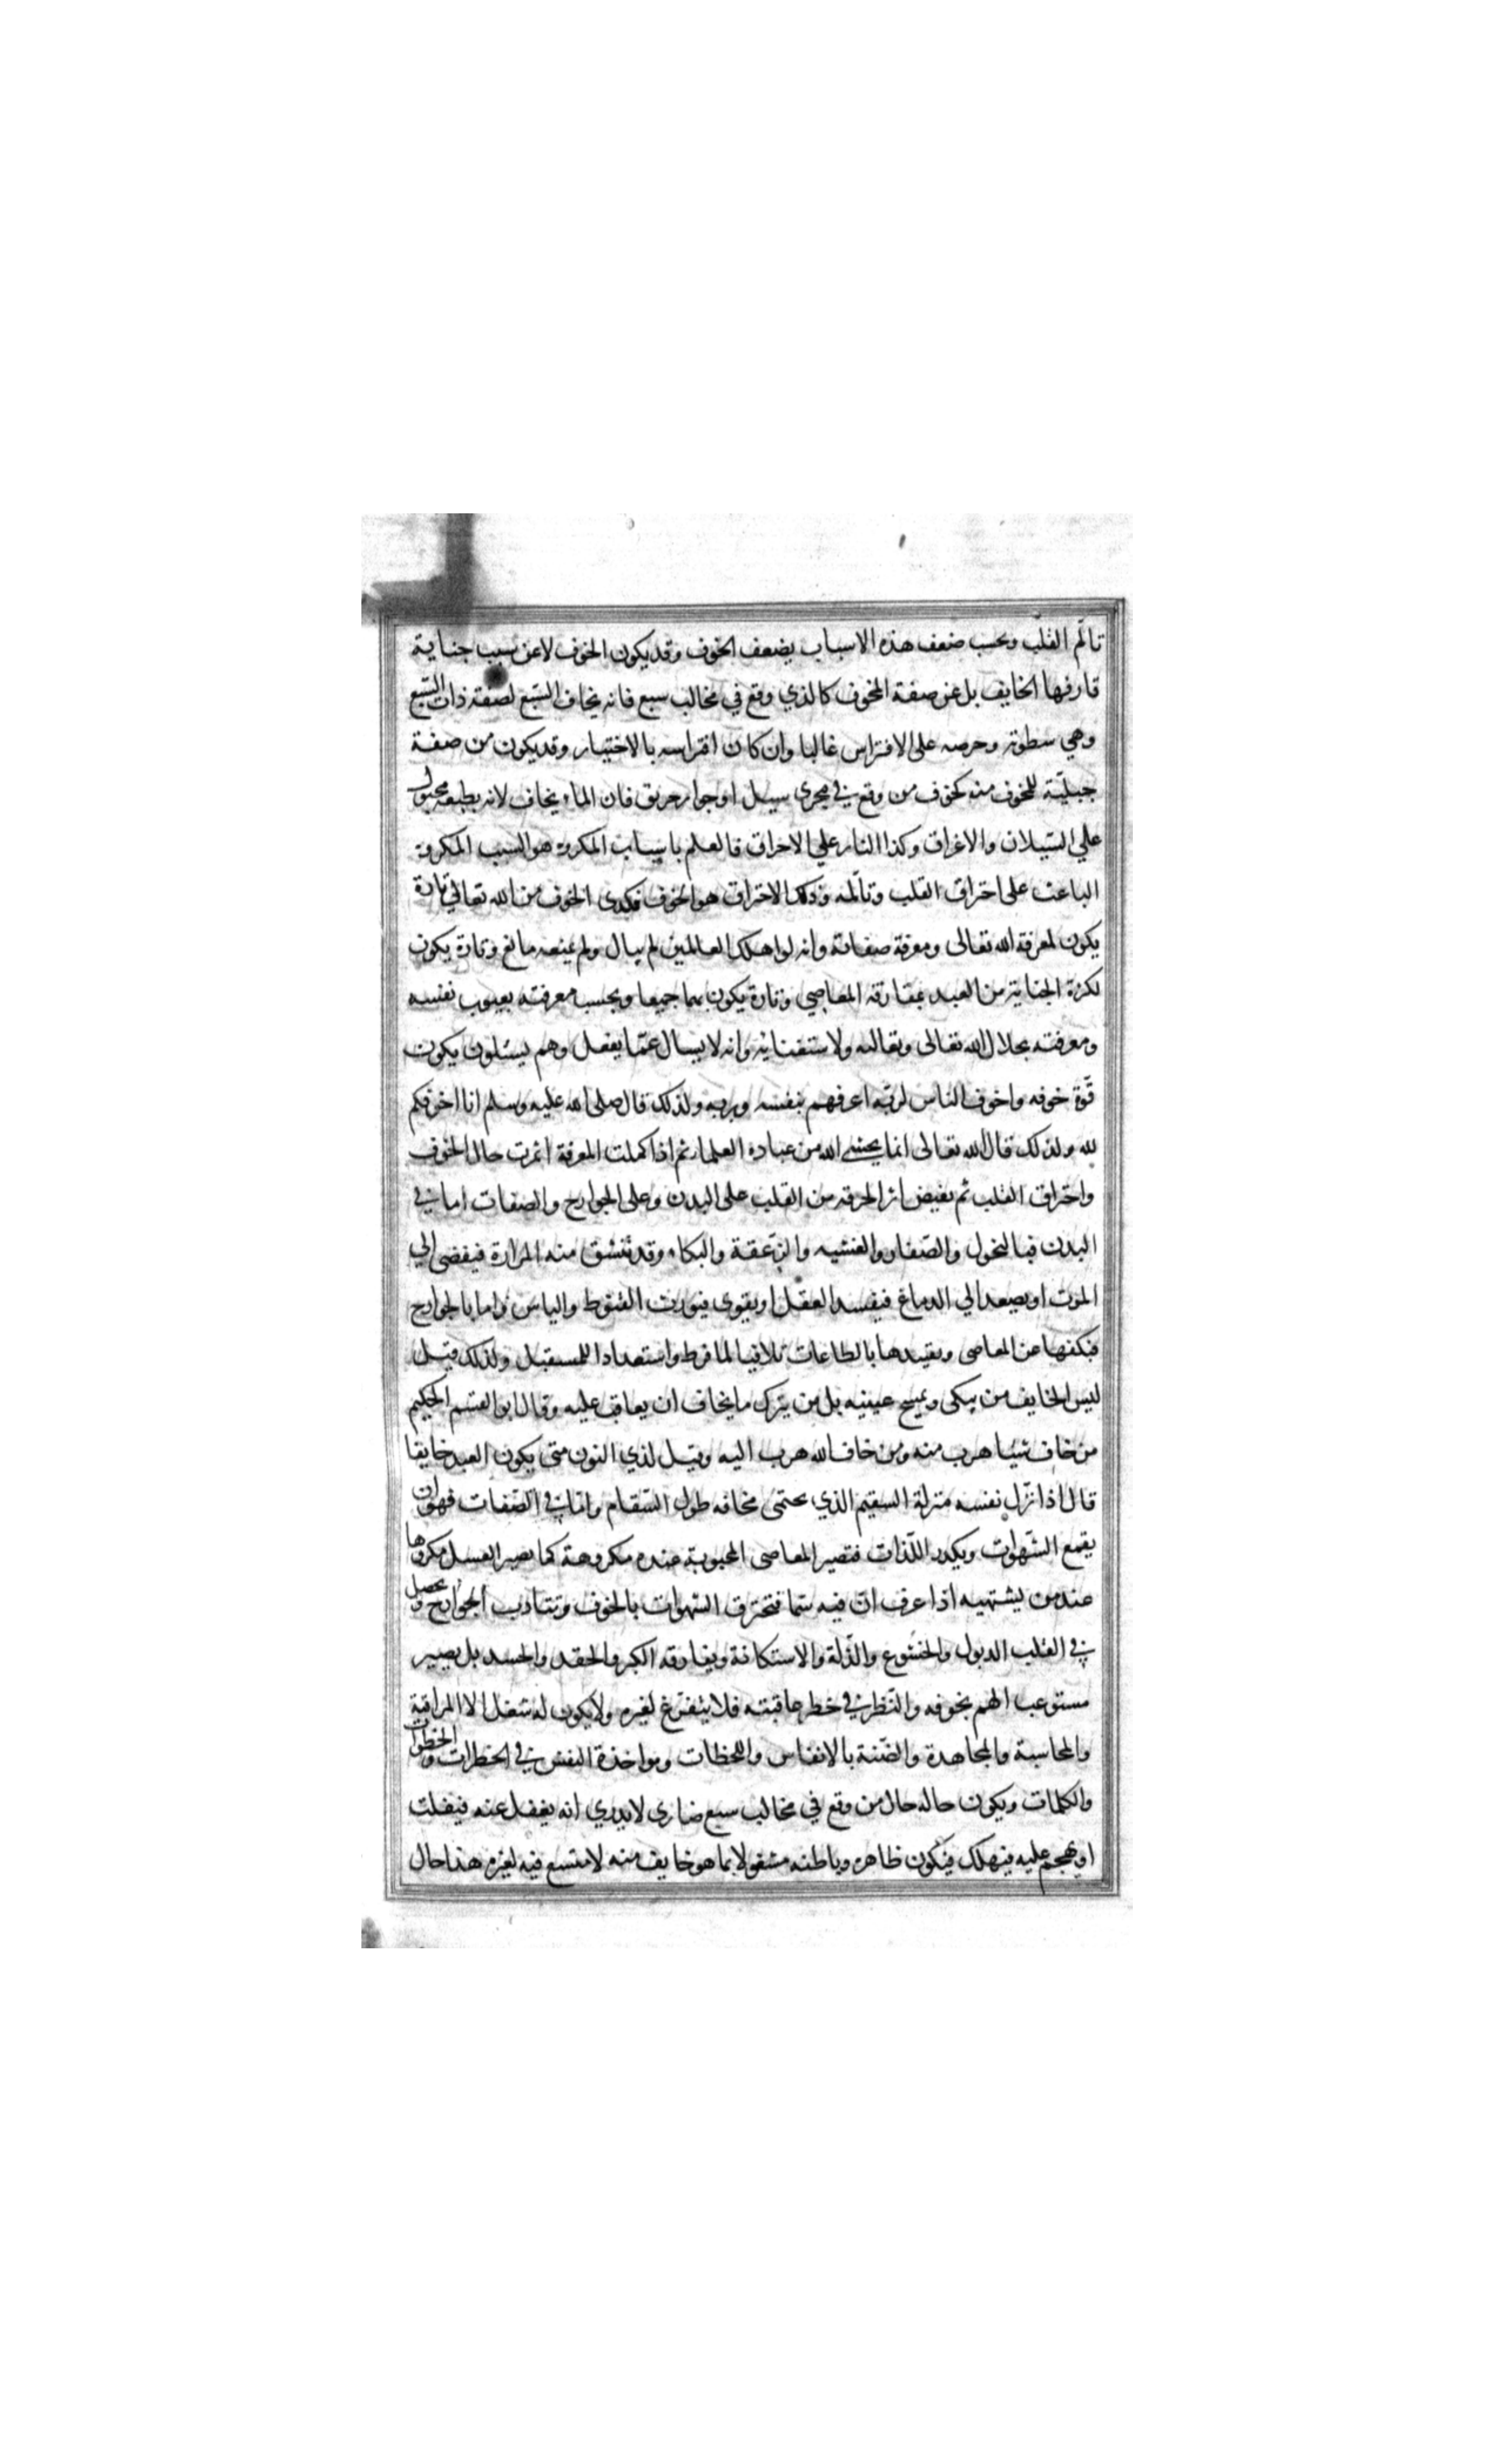 تالّم القلب وبحسب ضعف هذه الاسباب يضعف الخوف وقد يكون الخوف لا عن سبب جناية
قارفها الخايف بل عن صفة المخوف كالذي وقع في مخالب سبع فانه يخاف السّبع لصفة ذات السّبع
وهي سطوته وحرصه على الافتراس غالبا وان كان افتراسه بالاختيار وقد يكون من صفة
جبليّة للمخوف منه كخوف من وقع في مجرى سيل او جوار حريق فان الماء يخاف لانه بطبعه مجبول
علي السّيلان والاغراق وكذا النار علي الاحراق فالعلم باسباب المكروه هو السبب المكروه
الباعث على احتراق القلب وتالّمه وذلك الاحتراق هو الخوف فكذى الخوف من الله تعالي تارة
يكون لمعرفة الله تعالى ومعرفة صفاته وانه لو اهلك العالمين لم يبال ولم يمنعه مانع وتارة يكون
لكثرة الجناية من العبد بمقارفة المعاصي وتارة يكون بهما جميعا وبحسب معرفته بعيوب نفسه
ومعرفته بجلال الله تعالى وتعاليه ولاستغنائه وانه لا يسال عمّا يفعل وهم يسئلون يكون
قوّة خوفه واخوف الناس لربّه اعرفهم بنفسه وبربه ولذلك قال صلى الله عليه وسلم انا اخوفكم
لله ولذلك قال الله تعالى انما يخشي الله من عباده العلماء ثم اذا كملت المعرفة اثمرت حال الخوف
واحتراق القلب ثم يفيض اثر الحرقه من القلب على البدن وعلى الجوارح والصفات اما في
البدن فبالنحول والصّفار والغشيه والزعقة والبكاء وقد تنشق منه المرارة فيفضى الي
الموت او يصعد الي الدماغ فيفسد العقل او يقوى فيورث القنوط والياس واما بالجوارح
فبكفها عن المعاصى وتقييدها بالطاعات تلافيا لما فرط واستعدادا للمستقبل ولذلك قيل
ليس الخايف من يبكى ويمسح عينيه بل من يترك ما يخاف ان يعاقب عليه وقال ابو القسم الحكيم
من خاف شيئا هرب منه ومن خاف الله هرب اليه وقيل لذي النون متى يكون العبد خايفا
قال اذا نزّل نفسه منزلة السقيم الذي يحتمى مخافه طول السّقام وامّا في الصّفات فهو ان
يقمع الشّهوات ويكدر اللّذات فتصير المعاصى المحبوبة عنده مكروهة كما يصير العسل مكروها
عند من يشتهيه اذا عرف انّ فيه سمّا فتحترق الشهوات بالخوف وتتادب الجوارح و يحصل
في القلب الدبول والخشوع والذّلة والاستكانة ويفارقه الكبر والحقد والحسد بل يصير
مستوعب الهم بخوفه والنّظر في خطر عاقبته فلا يتفرّغ لغيره ولا يكون له شغل الا المراقبة
والمحاسبة والمجاهدة والضّنة بالانفاس واللحظات ومواخذة النفس في الخطرات و الخطوات
والكلمات ويكون حاله حال من وقع في مخالب سبع ضارى لا يدري انه يغفل عنه فيفلت
او يهجم عليه فيهلك فيكون ظاهره وباطنه مشغولا بما هو خايف منه لا متسع فيه لغيره هذا حال